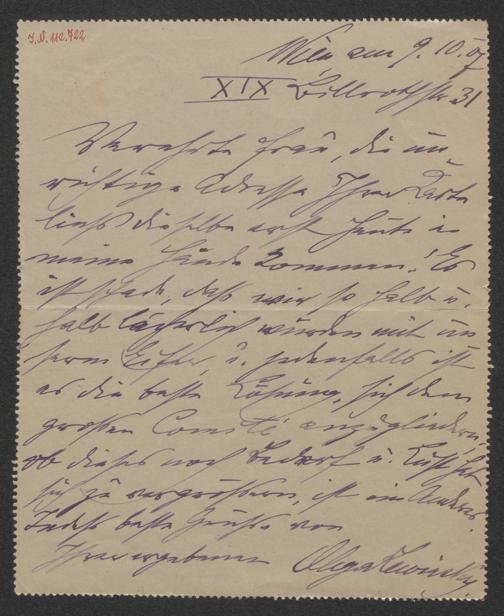 J.N. 112.722
Wien am 9. 10. 07
XIX Billrothstr. 31
Verehrte Frau, die un
richtige Adresse Ihrer Karte
ließ dieselbe erst heute in
meine Hände kommen. Es
ist schade, daß wir so halb u.
halb lächerlich wurden mit un
serm Eifer, u. jedenfalls ist
es die beste Lösung, sich dem
großen Comité anzugliedern,
ob dieses noch Bedarf u. Lust hat
sich zu vergrößern, ist ein Anderes.
Indeß beste Grüße von
Ihrer ergebenen Olga Lewinsky